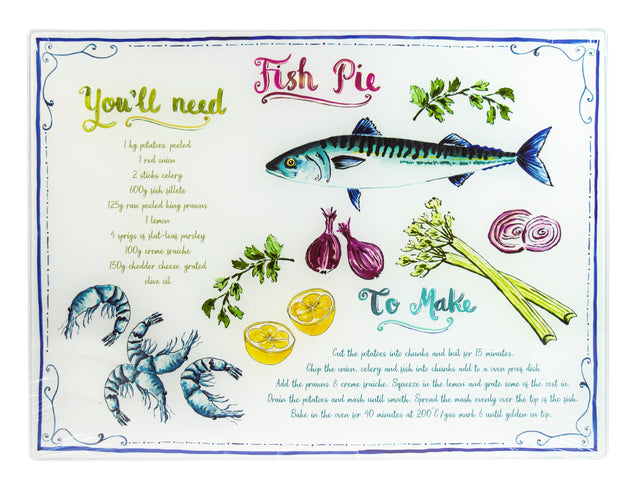 Fish Pie
You'll need
1 kg potatoes, peeled
1 red onion
2 sticks celery
600g fish fillets
125g raw peeled king prawns
1 lemon
4 sprigs of flat-leaf parsley
100g creme fraiche
150g chedder cheese, grated
olive oil
To Make
Cut the potatoes into chunks and boil for 15 minutes.
Chop the onion, celery and fish into chunks add to a oven proof dish
Add the prawns & creme fraiche. Squeeze in the lemon and grate some of the zest in.
Drain the potatoes and mash until smooth. Spread the mash evenly over the top of the fish.
Bake in the oven for 40 minutes at 200°C/gas mark 6 until golden on top.